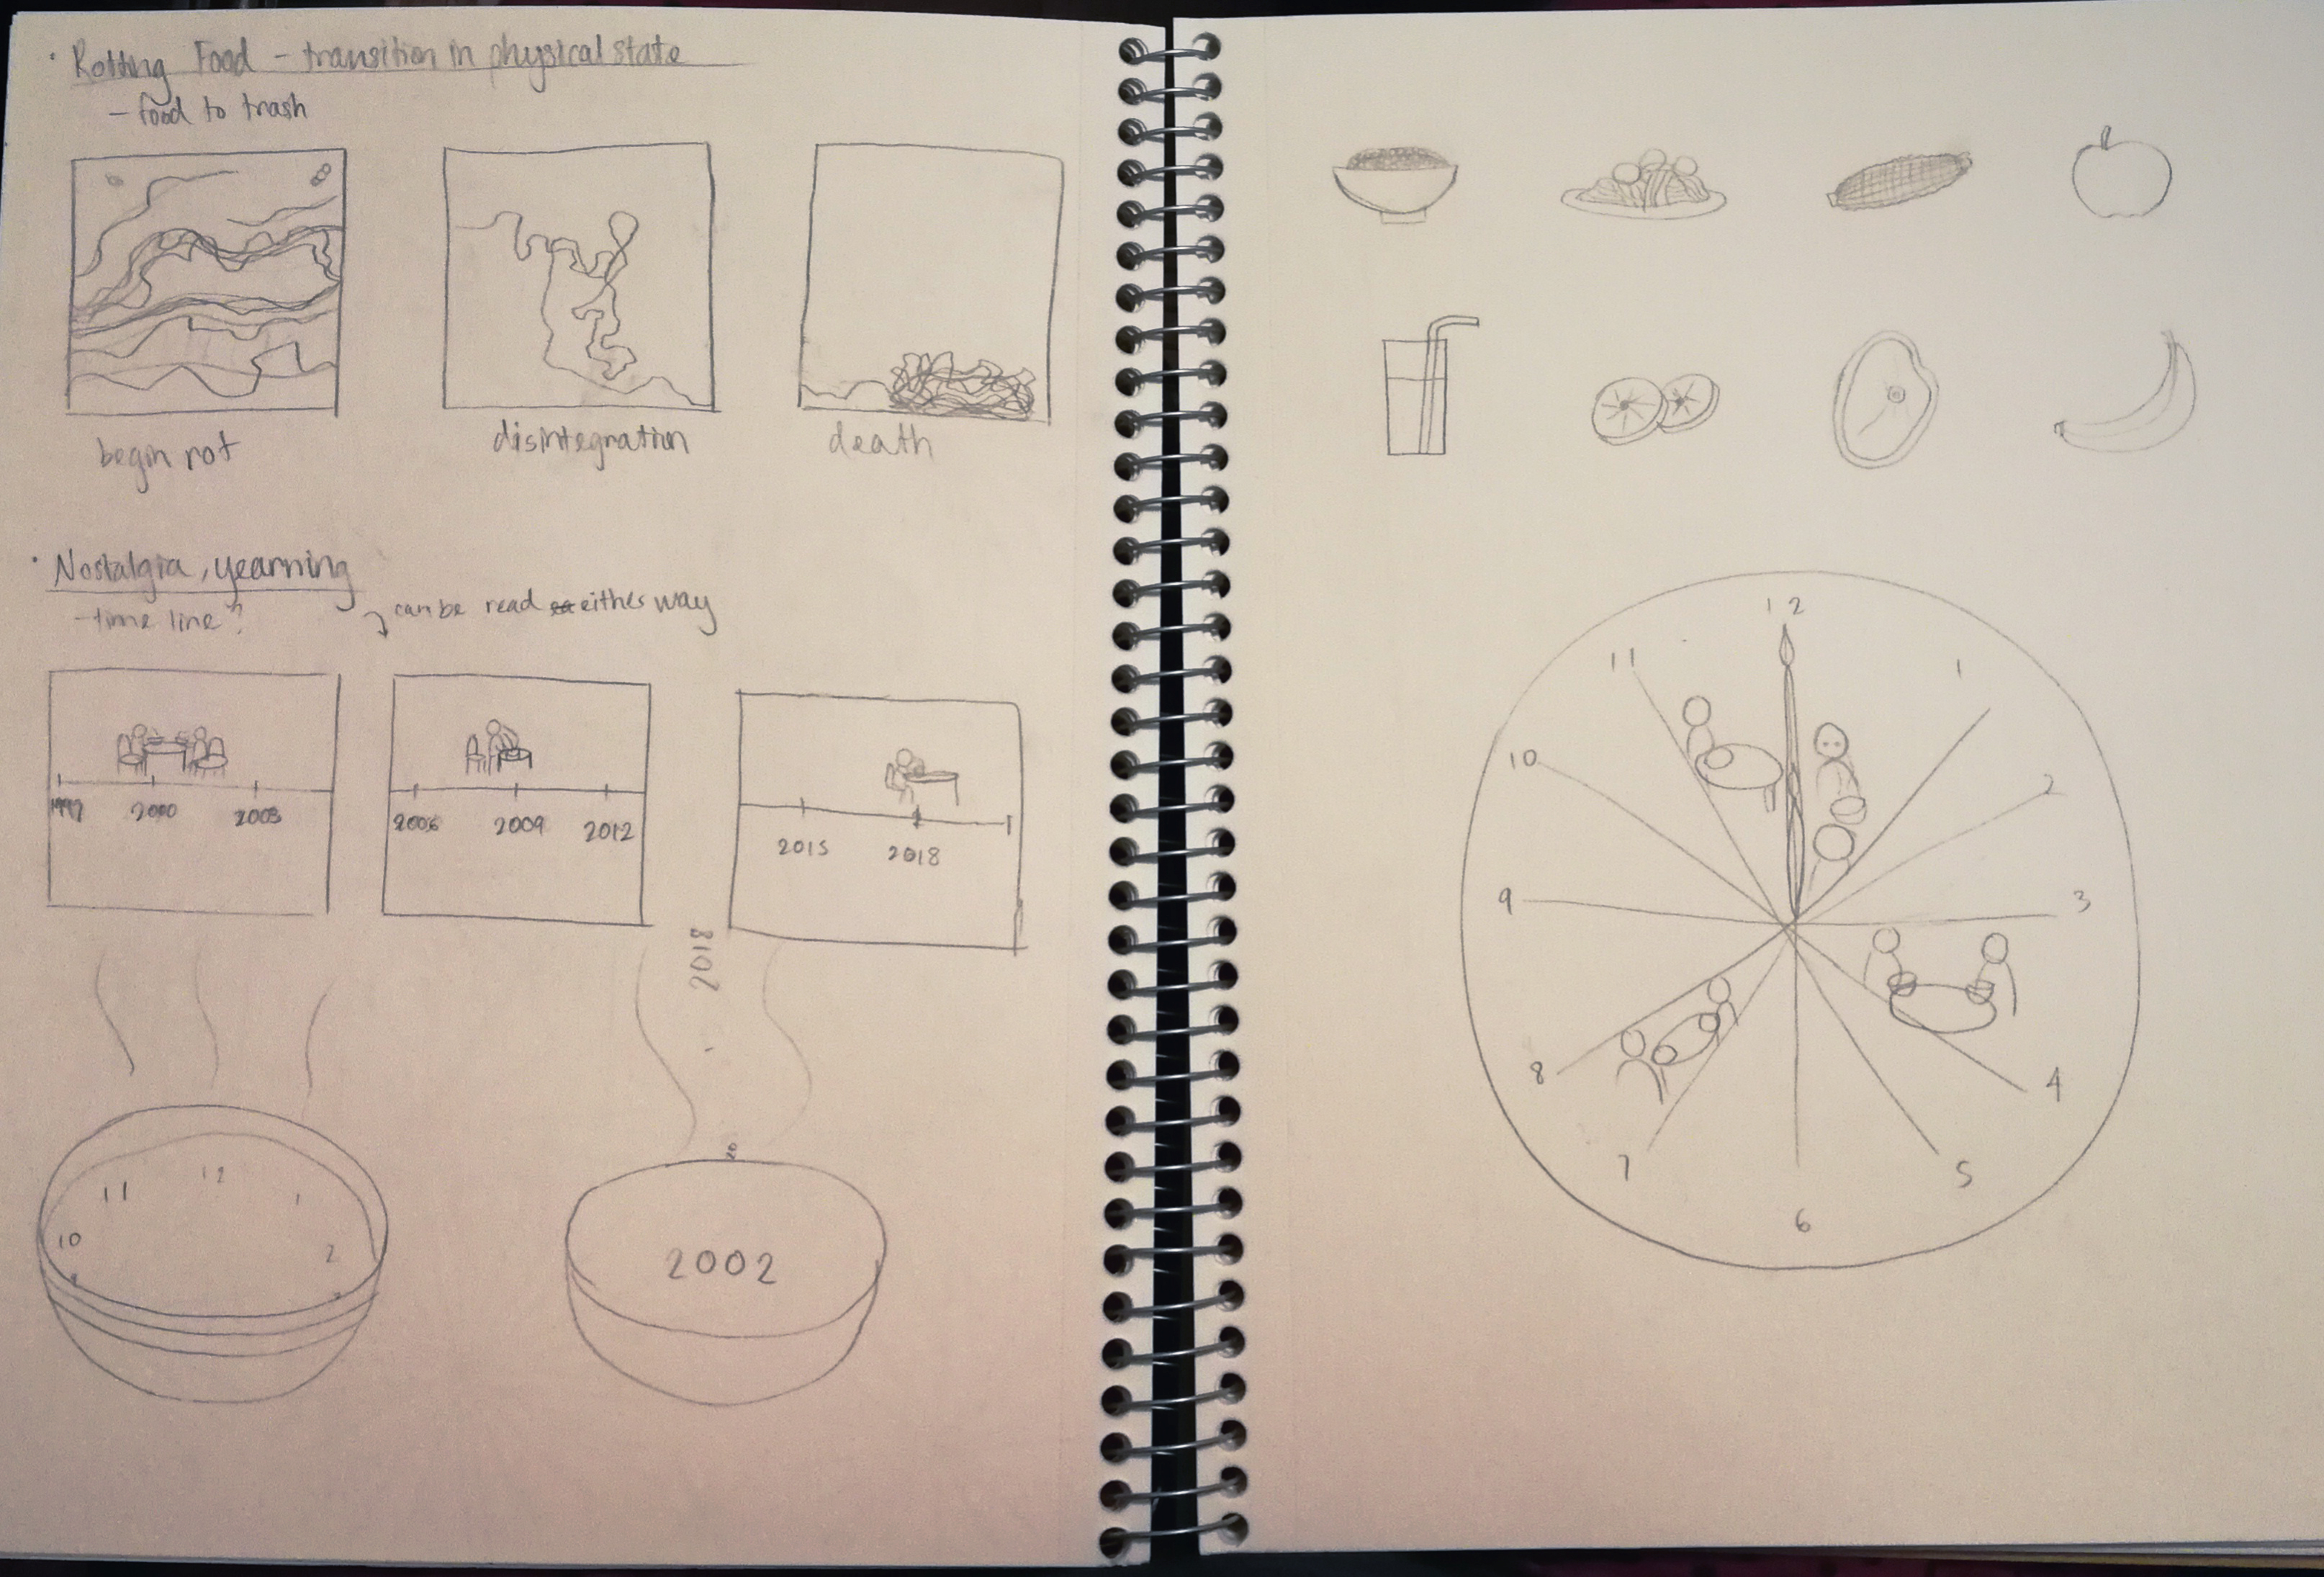 · Rotting Food - transition in physical state
- food to trash
begin rot
disintegration
death
· Nostalgia, yearning
- time line?
can be read either way
1997 2000 2003
2006 2009 2012
2015 2018
2018
11 12 1
10 2
20
2002
12
11 1
10 2
9 3
8 4
7 5
6